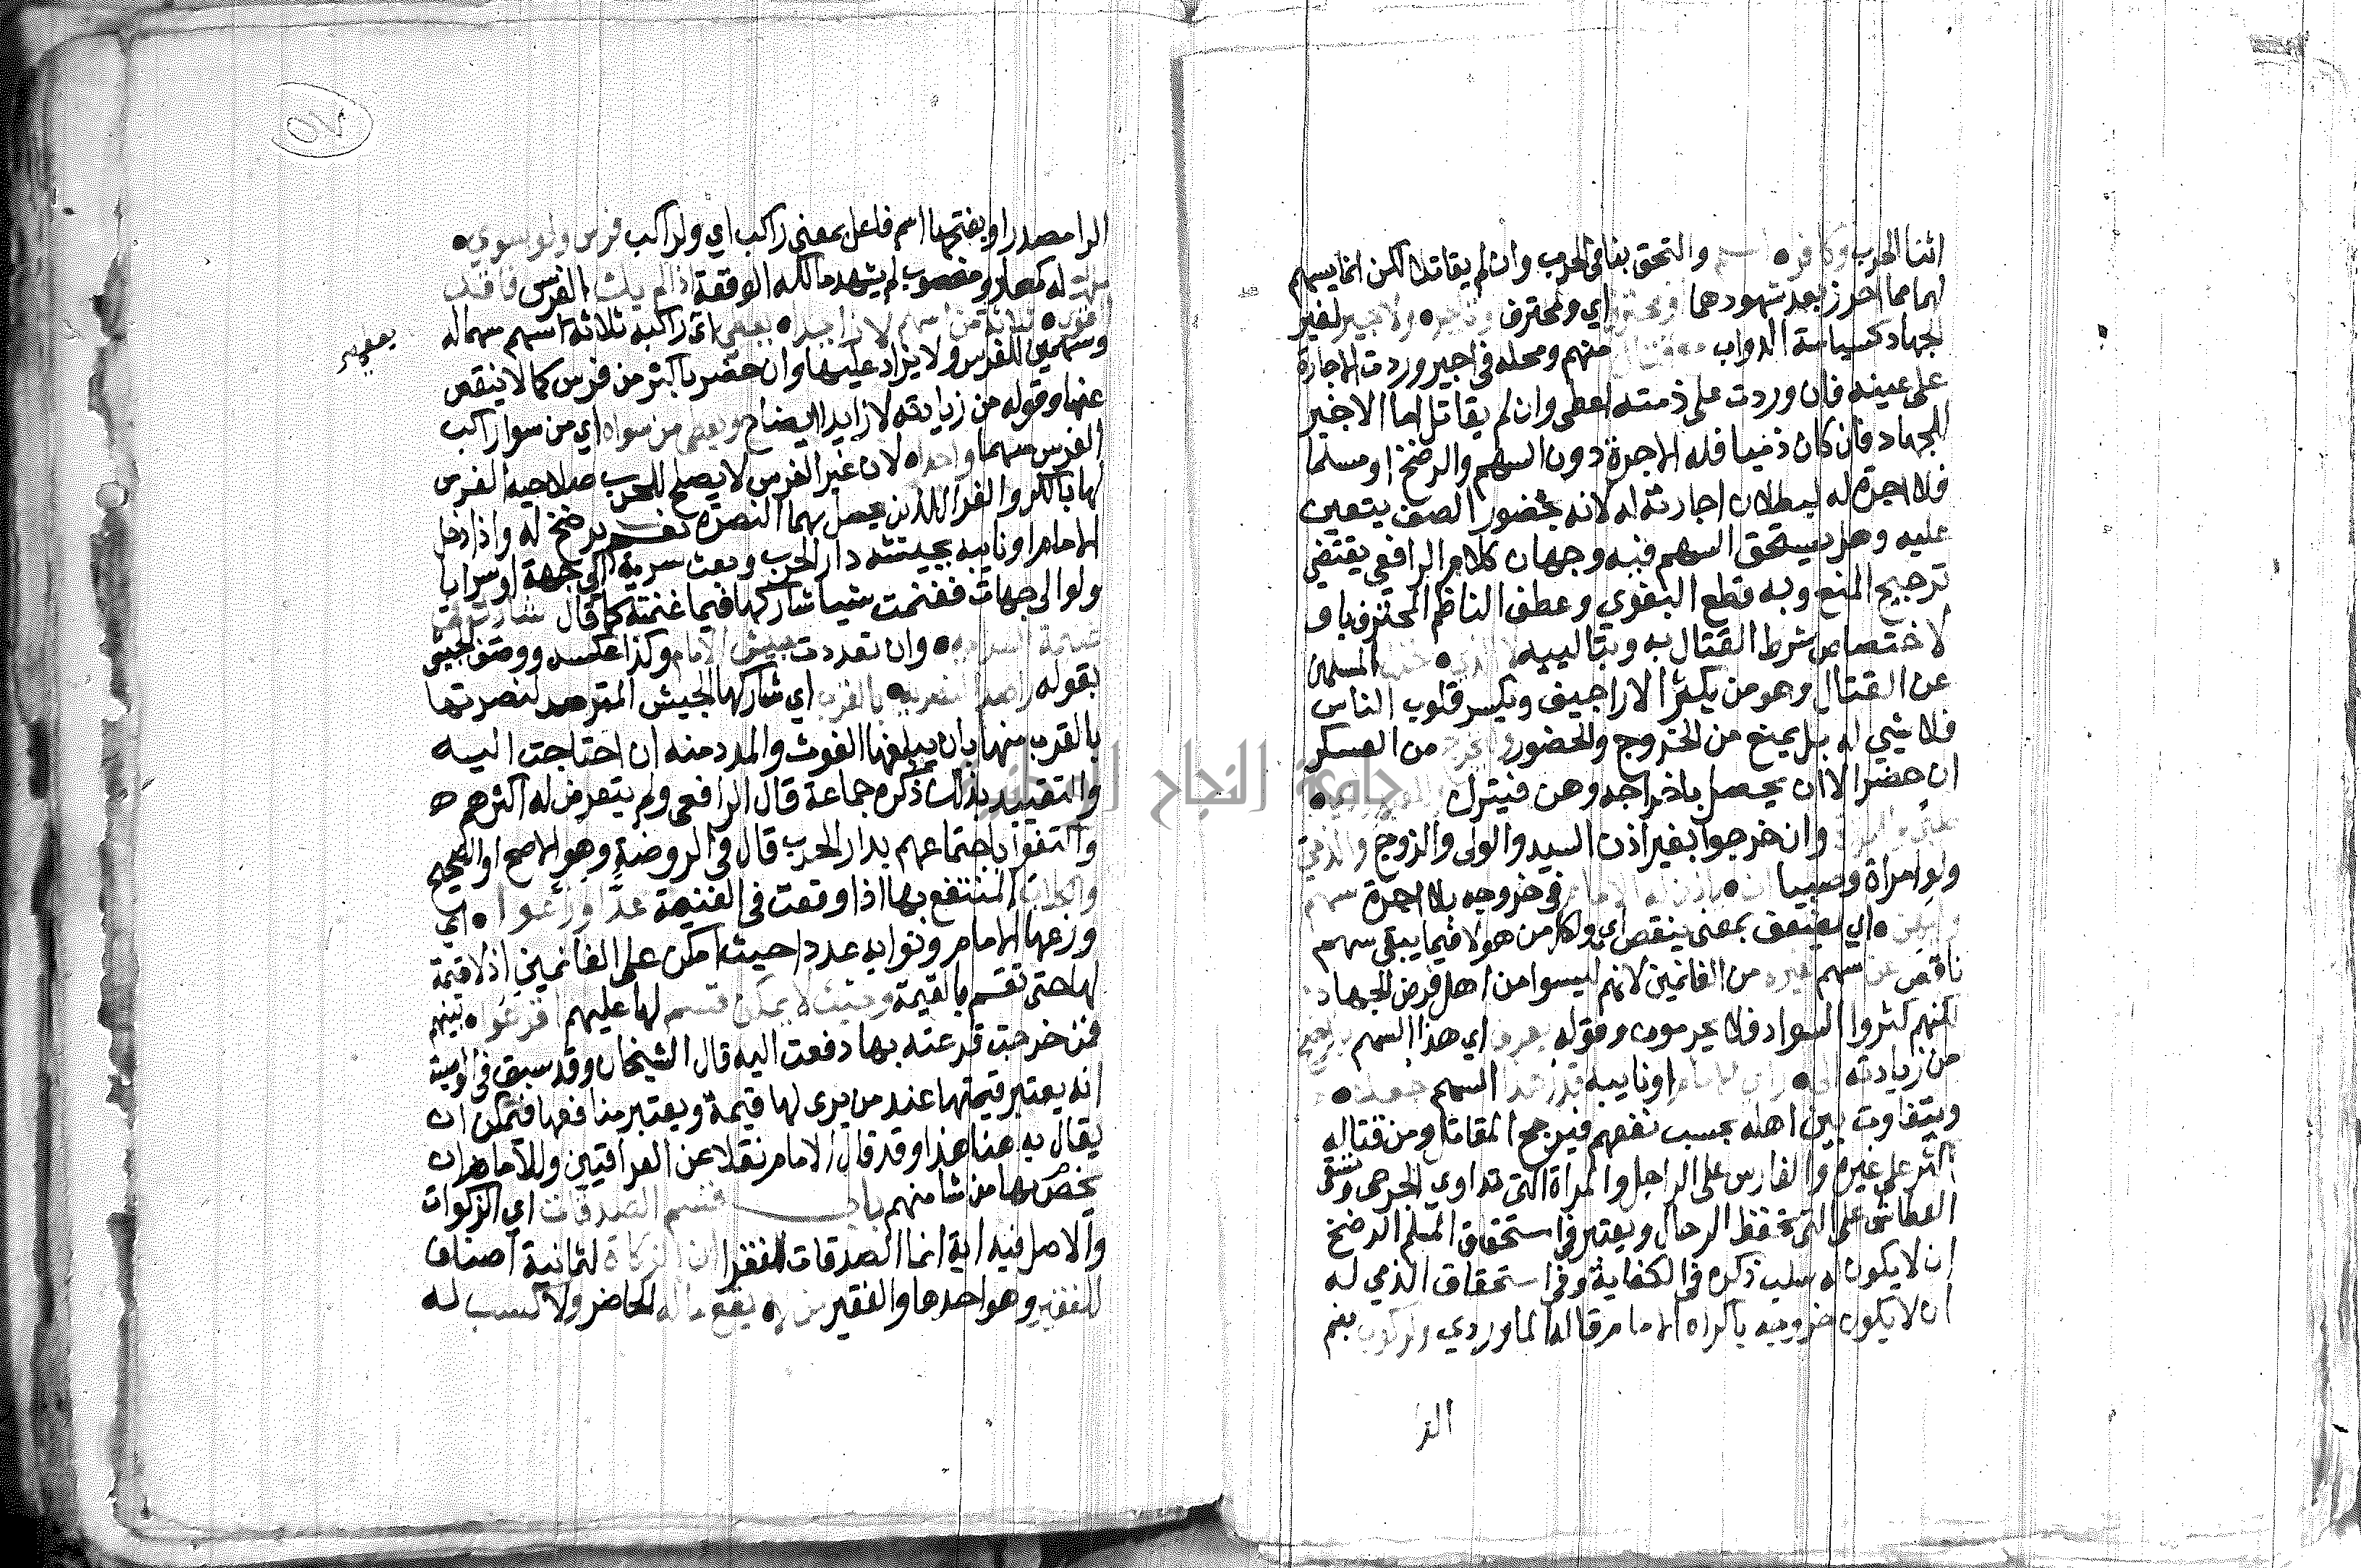 اثنا الحرب وكافر اسلم والتحق بنا في الحرب وان لم يقاتلا لكن انما يسهم
لهما مما احرز بعد شهودهما ومحترف اي ومحترف وتاجر ولاجير لغير
لجهاد كسياسة الدواب منهم ومحله في اجير وردت الاجارة
على عينه فان وردت على ذمته اعطي وان لم يقاتل اما الاجير
للجهاد فان كان ذميا فله الاجرة دون السهم والرضخ او مسلما
فلا اجرة له لبطلان اجارته له لانه بحضور الصف يتعين
عليه وهل يستحق السهم فيه وجهان كلام الرافعي يقتضي
ترجيح المنع وبه قطع البغوي وعطف الناظم المحترف باو
لاختصاص شرط القتال به وبتالييه لا الذي المسلمين
عن القتال وهو من يكثر الاراجيف ويكسر قلوب الناس
فلا شي له بل يمنع من الخروج والحضور من العسكر
ان حضر الا ان يحصل باخراجه وهن فيترك
وان خرجوا بغير اذن السيد والولي والزوج والذمي
ولو امراة وصبيا ان باذن له الامام في خروجه بلا اجرة سهم
اي بمعنى ينقص اي ولكل من هولا فيما يبقى سهم
ناقص عن سهم غيره من الغانمين لانهم ليسوا من اهل فرض الجهاد
لكنهم كثروا السواد فلا يحرمون وقوله اي هذا السهم
من زيادته راي الامام او نايبه قدر هذا السهم
ويتفاوت بين اهله بحسب نفعهم فيرجح المقاتل ومن قتاله
اكثر على غيره والفارس على الراجل والمراة التي تداوي الجرحى وتسقي
العطاش على التي تحفظ الرحال ويعتبر في استحقاق المسلم الرضخ
ان لا يكون له سلب ذكره في الكفاية وفي استحقاق الذمي له
ان لا يكون خروجه باكراه الامام قاله الماوردي ولركوب بفتح
الرا
الرا مصدرا وبفتحها اسم فاعل بمعنى راكب اي ولراكب فرس ولو سوي
له كمعار ومغصوب لم يشهد مالكه الوقعة اذا لم يك الفرس
ثلاثة من اسهم لا زايدا يعطي اي راكبه ثلاثة اسهم سهما له
وسهمين للفرس ولا يزاد عليها وان حضر باكثر من فرس كما لا ينقص
عنها وقوله من زيادته لا زايدا ايضاح ويعطي من سواه اي من سوا راكب
الفرس سهما واحدا لان غير الفرس لا يصلح للحرب صلاحية الفرس
لها بالكر والفر اللذين يحصل بهما النصرة نعم يرضخ له واذا دخل
الامام او نايبه بجيشه دار الحرب وبعث سرية الى جهة او سرايا
ولو الى جهات فغنمت شيا شاركها فيما غنمته كما قال
وان تعددت جيش الامام وكذا عكسه ووصف الجيش
بقوله بالقرب اي شاركها الجيش المترصد لنصرتها
بالقرب منها بان يبلغها الغوث والمدد منه ان احتاجت اليه
والتقييد بذلك ذكره جماعة قال الرافعي ولم يتعرض له اكثرهم
واكتفوا باجتماعهم بدار الحرب قال في الروضة وهو الاصح او الصحيح
والكلاب المنتفع بها اذا وقعت في الغنيمة عدا وزعوا اي
وزعها الامام ونوابه عددا حيث امكن على الغانمين اذ لا قيمة
لها حتى تقسم بالقيمة وحيث لا يمكن قسم لها عليهم اقرعوا بينهم
فمن خرجت قرعته بها دفعت اليه قال الشيخان وقد سبق في الوصية
انه يعتبر قيمتها عند من يرى لها قيمة ويعتبر منافعها فيمكن ان
يقال به هنا هذا وقد قال الامام نقلا عن العراقيين وللامام ان
يخص بها من شا منهم باب قسم الصدقات اي الزكوات
والاصل فيه اية انما الصدقات للفقرا ان الزكاة لثمانية اصناف
للفقير وهو احدها والفقير من الحاضر ولا كسب له